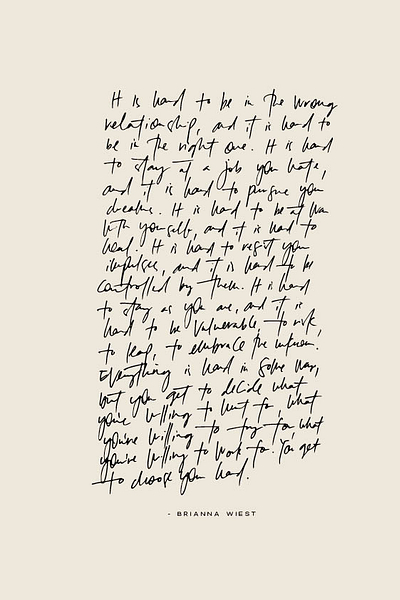 It is hard to be in the wrong
relationship, and it is hard to
be in the right one. It is hard
to stay at a job you hate,
and it is hard to pursue your
dreams. It is hard to be at war
with yourself, and it is hard to
heal. It is hard to resist your
impulses, and it is hard to be
controlled by them. It is hard
to stay as you are, and it is
hard to be vulnerable, to risk,
to leap, to embrace the unknown.
Everything is hard in some way,
but you get to decide what
you're willing to hurt for, what
you're willing to try for what
you're willing to work for. You get
to choose your hard.
- BRIANNA WIEST